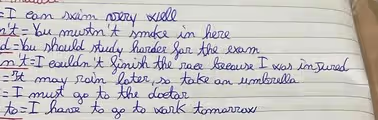 =I can swim very well
n't=You mustn't smoke in here
d=You should study harder for the exam
n't=I couldn't finish the race because I was injured
=It may rain later, so take an umbrella
=I must go to the doctor
to=I have to go to work tomorrow